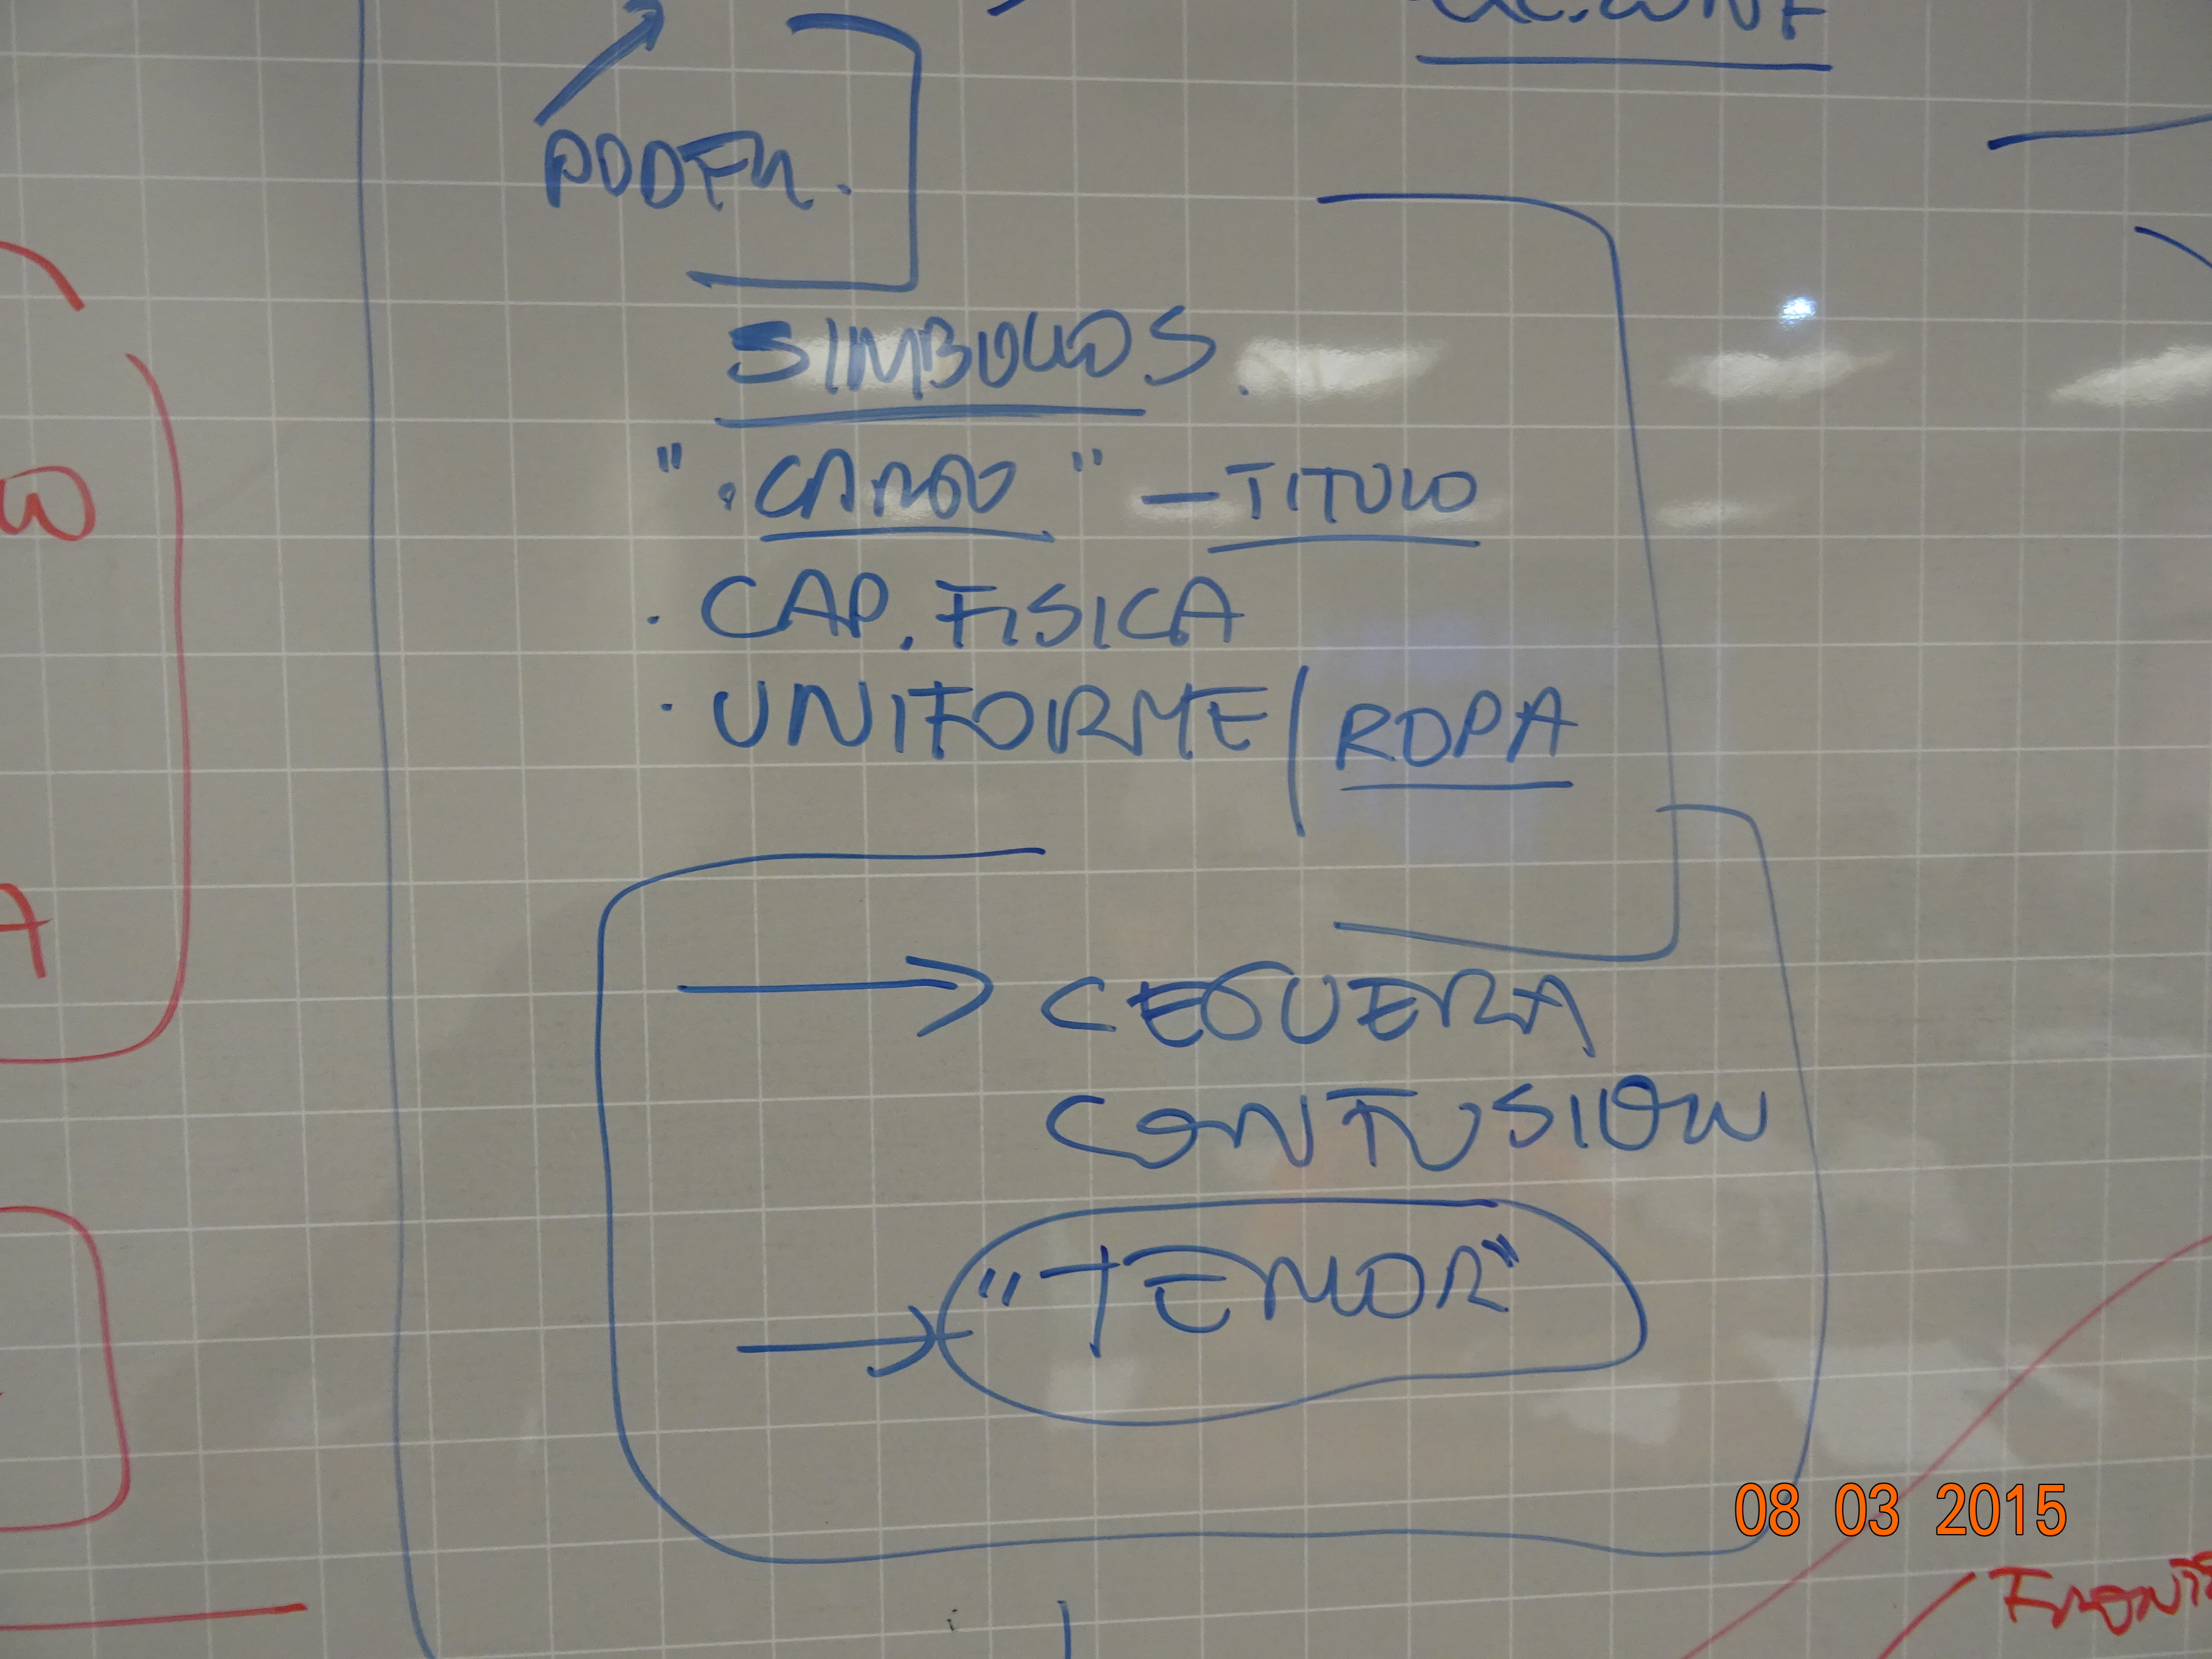 PODER.
SIMBOLOS.
". CARGO" — TITULO
. CAP. FISICA
. UNIFORME / ROPA
→ CEGUERA
CONFUSION
→ "TEMOR"
08 03 2015